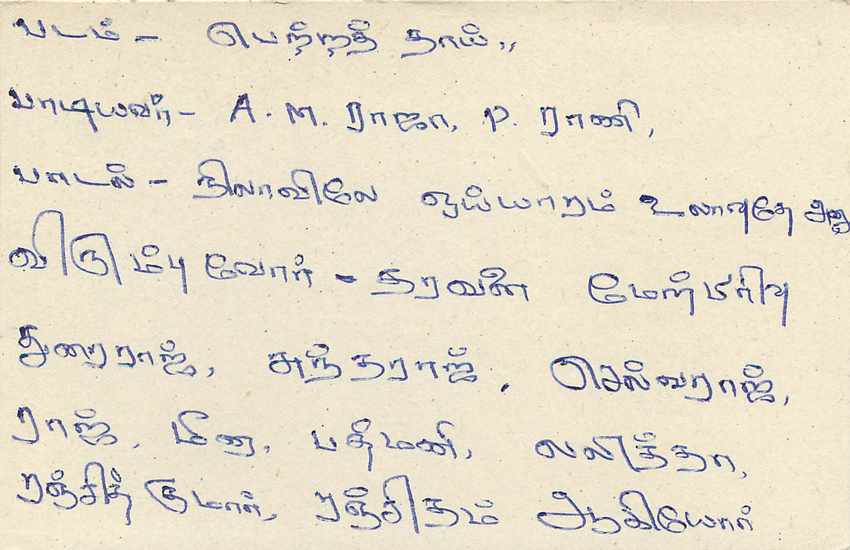 படம் - பெற்றத் தாய்,,
பாடியவர் - A. M. ராஜா, P. ராணி,
பாடல் - நிலாவிலே ஒய்யாரம் உலாவுதே
விரும்புவோர் - தரவளை மேல்பிரிவு
துரைராஜ், சுந்தரராஜ், செல்வராஜ்,
ராஜ், மீனா, பத்மணி, லலித்தா,
ரஞ்சித்குமார், ரஞ்சிதம் ஆகியோர்